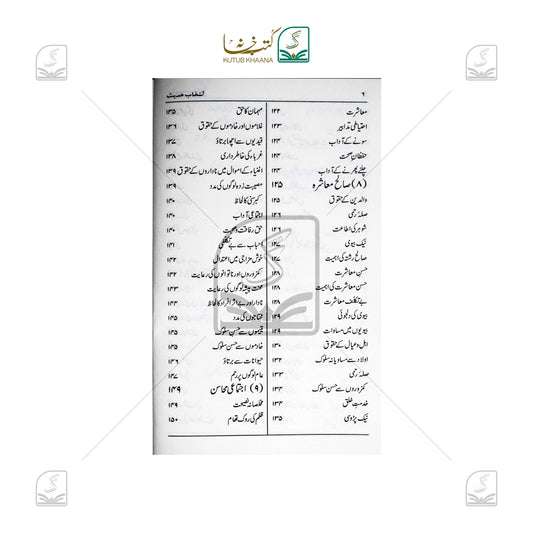 کتب خانہ
KUTUB KHAANA
۶
انتخاب حدیث
معاشرت ۱۲۲
احتیاطی تدابیر ۱۲۳
سونے کے آداب ۱۲۳
حفظانِ صحت ۱۲۴
چلنے پھرنے کے آداب ۱۲۴
(۸) صالح معاشرہ ۱۲۵
والدین کے حقوق ۱۲۵
صلہ رحمی ۱۲۶
شوہر کی اطاعت ۱۲۶
نیک بیوی ۱۲۷
صالح رشتہ کی اہمیت ۱۲۷
حسنِ معاشرت ۱۲۸
حسن معاشرت کی اہمیت ۱۲۸
بے تکلف معاشرت ۱۲۸
بیوی کی دلجوئی ۱۲۹
بیویوں میں مساوات ۱۲۹
اہل و عیال کے حقوق ۱۳۰
اولاد سے مساویانہ سلوک ۱۳۲
صلہ رحمی ۱۳۳
کمزوروں سے حسن سلوک ۱۳۳
خدمتِ خلق ۱۳۴
نیک پڑوسی ۱۳۵
مہمان کا حق ۱۳۵
غلاموں اور خادموں کے حقوق ۱۳۶
قیدیوں سے اچھا برتاؤ ۱۳۷
غرباء کی خاطر داری ۱۳۸
اغنیاء کے اموال میں ناداروں کے حقوق ۱۳۹
مصیبت زدہ لوگوں کی مدد ۱۳۹
کبر سنی کا لحاظ ۱۴۰
اجتماعی آداب ۱۴۰
حق رفاقت و صحبت ۱۴۰
احباب سے بے تکلفی ۱۴۱
خوش مزاجی میں اعتدال ۱۴۲
کمزوروں اور ناتوانوں کی رعایت ۱۴۲
محنت پیشہ لوگوں کی رعایت ۱۴۳
نادار اور بے اثر افراد کا لحاظ ۱۴۴
محتاجوں کی مدد ۱۴۵
یتیموں سے حسن سلوک ۱۴۵
خادموں سے حسن سلوک ۱۴۵
حیوانات سے برتاؤ ۱۴۶
عام لوگوں پر رحم ۱۴۷
(۹) اجتماعی محاسن ۱۴۹
مخلصانہ نصیحت ۱۴۹
ظلم کی روک تھام ۱۵۰